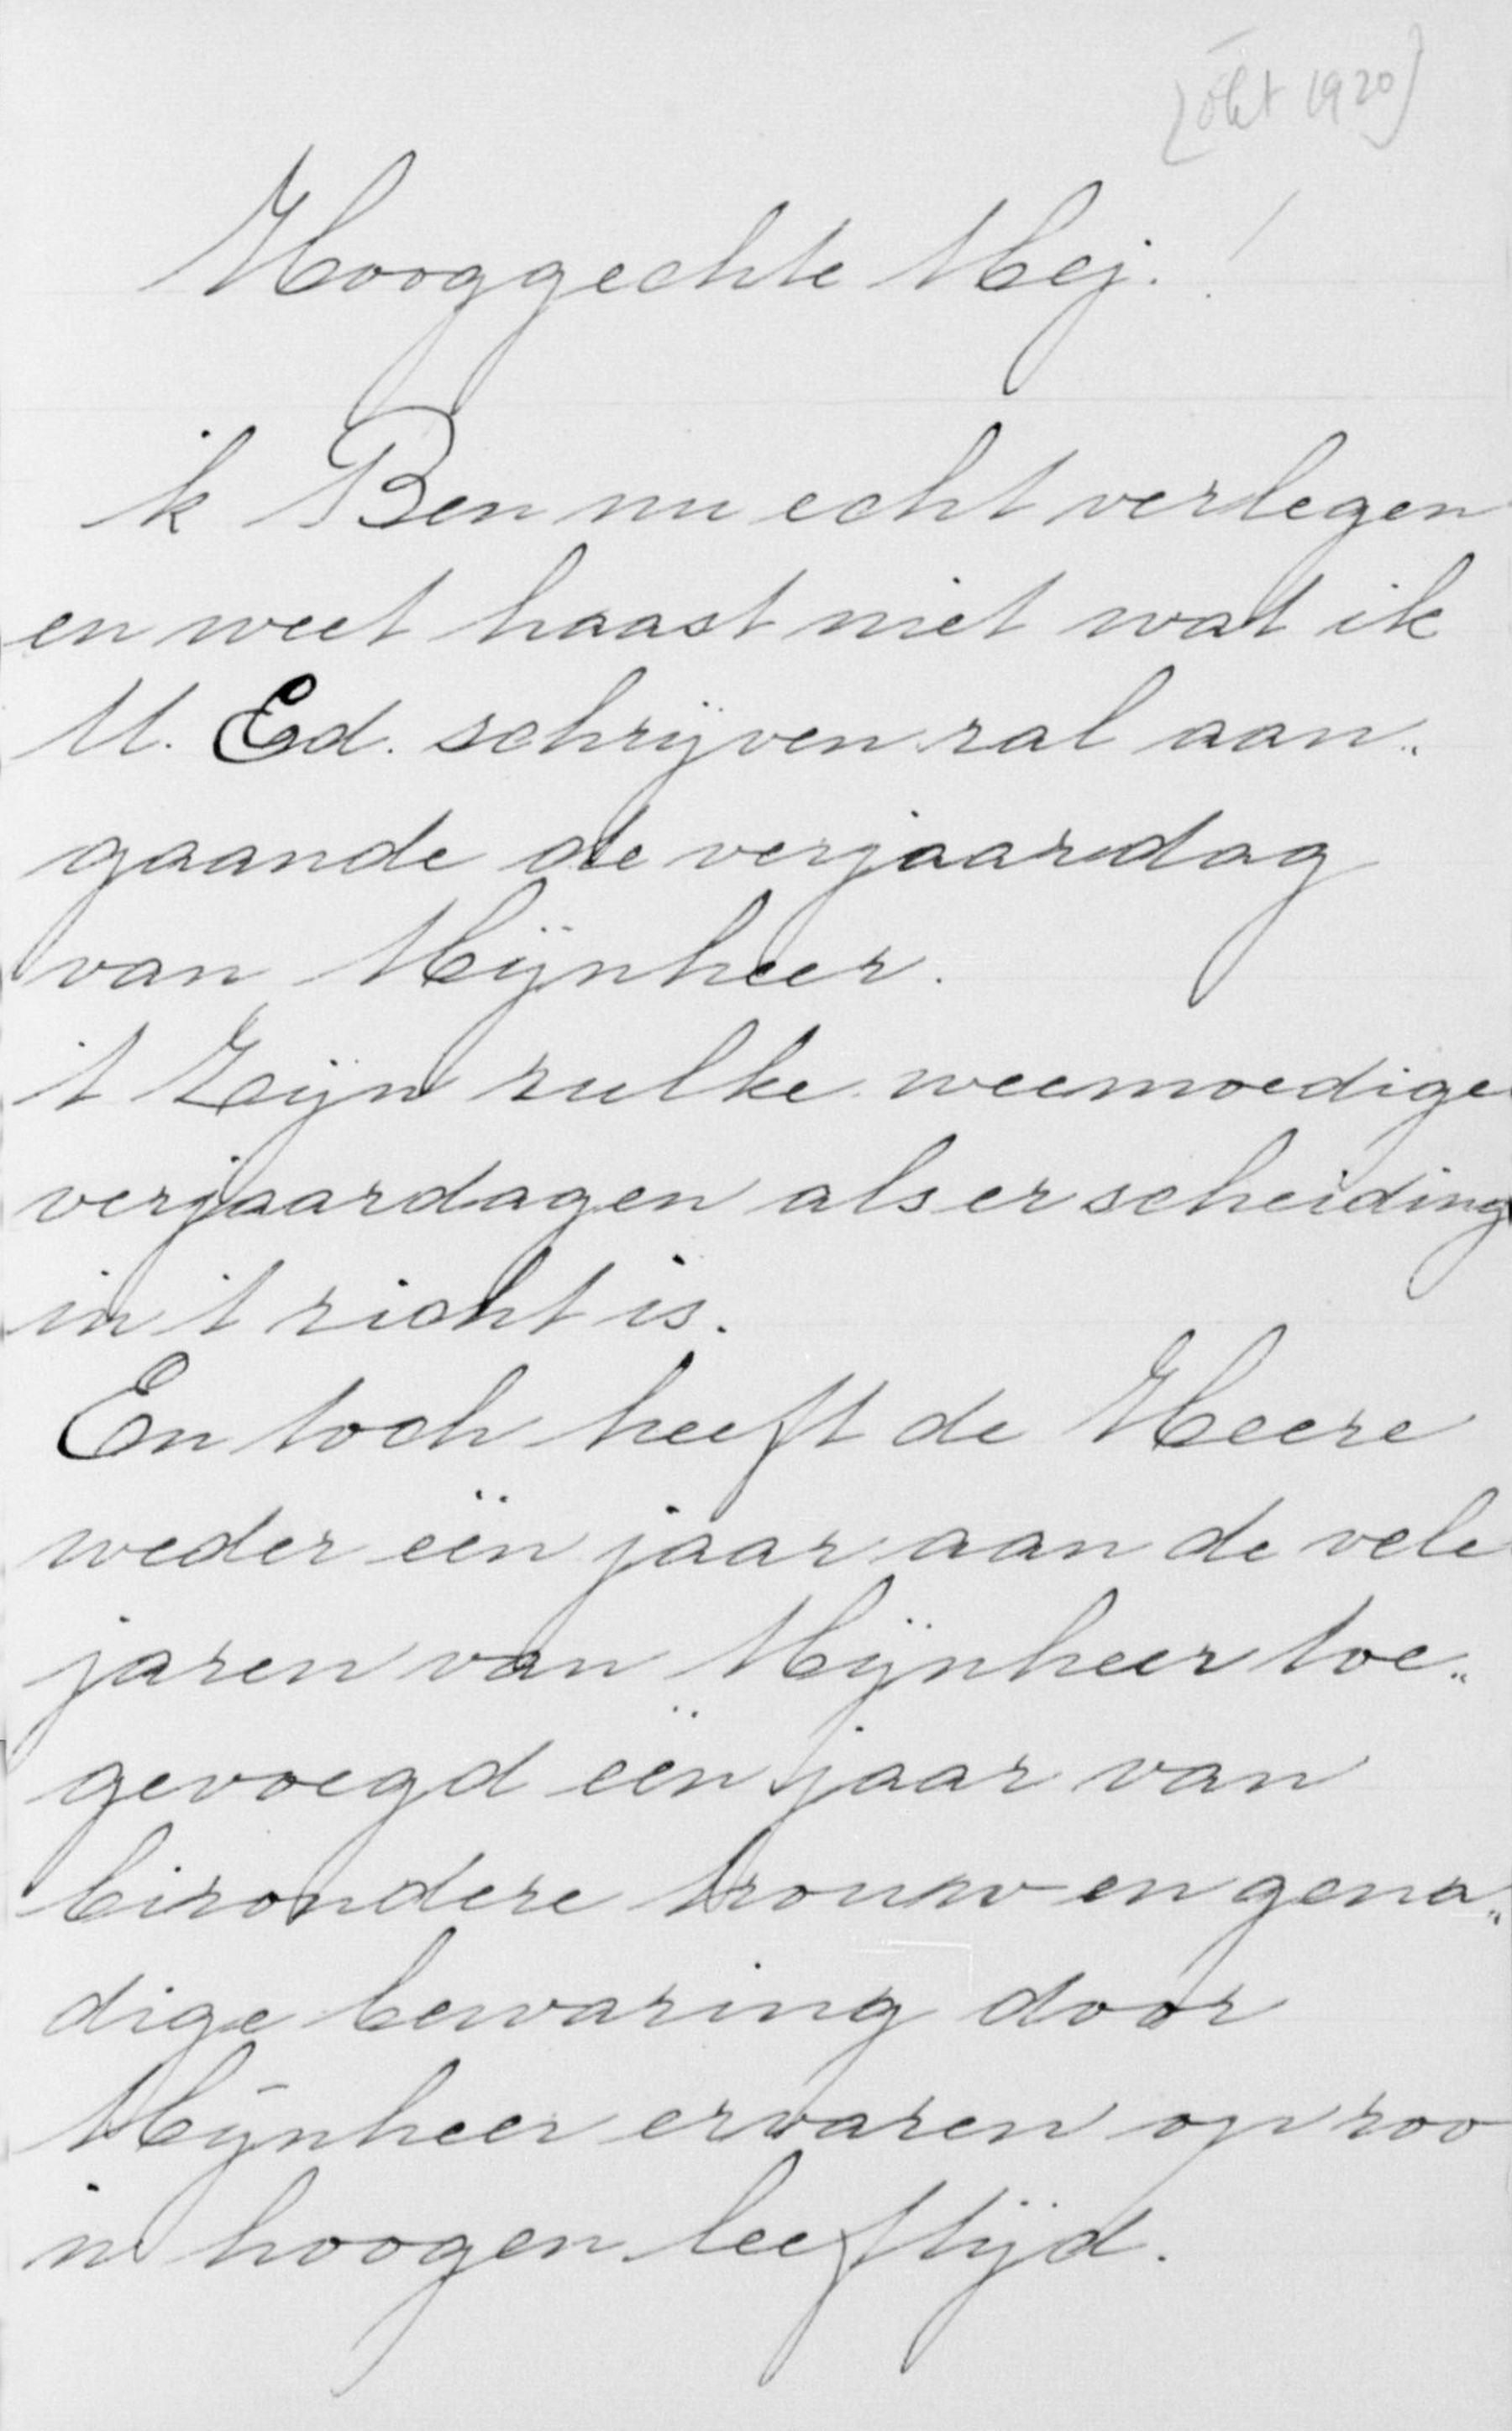 [Okt 1920]
Hooggechte Mej.!
ik Ben nu echt verlegen
en weet haast niet wat ik
U. Ed. schrijven zal aan„
gaande de verjaardag
van Mijnheer.
't Zijn zulke weemoedige
verjaardagen als er scheiding
in 't zicht is.
En toch heeft de Heere
weder één jaar aan de vele
jaren van Mijnheer toe„
gevoegd één jaar van
bizondere trouw en gena„
dige bewaring door
Mijnheer ervaren op zoo
n hoogen leeftijd.